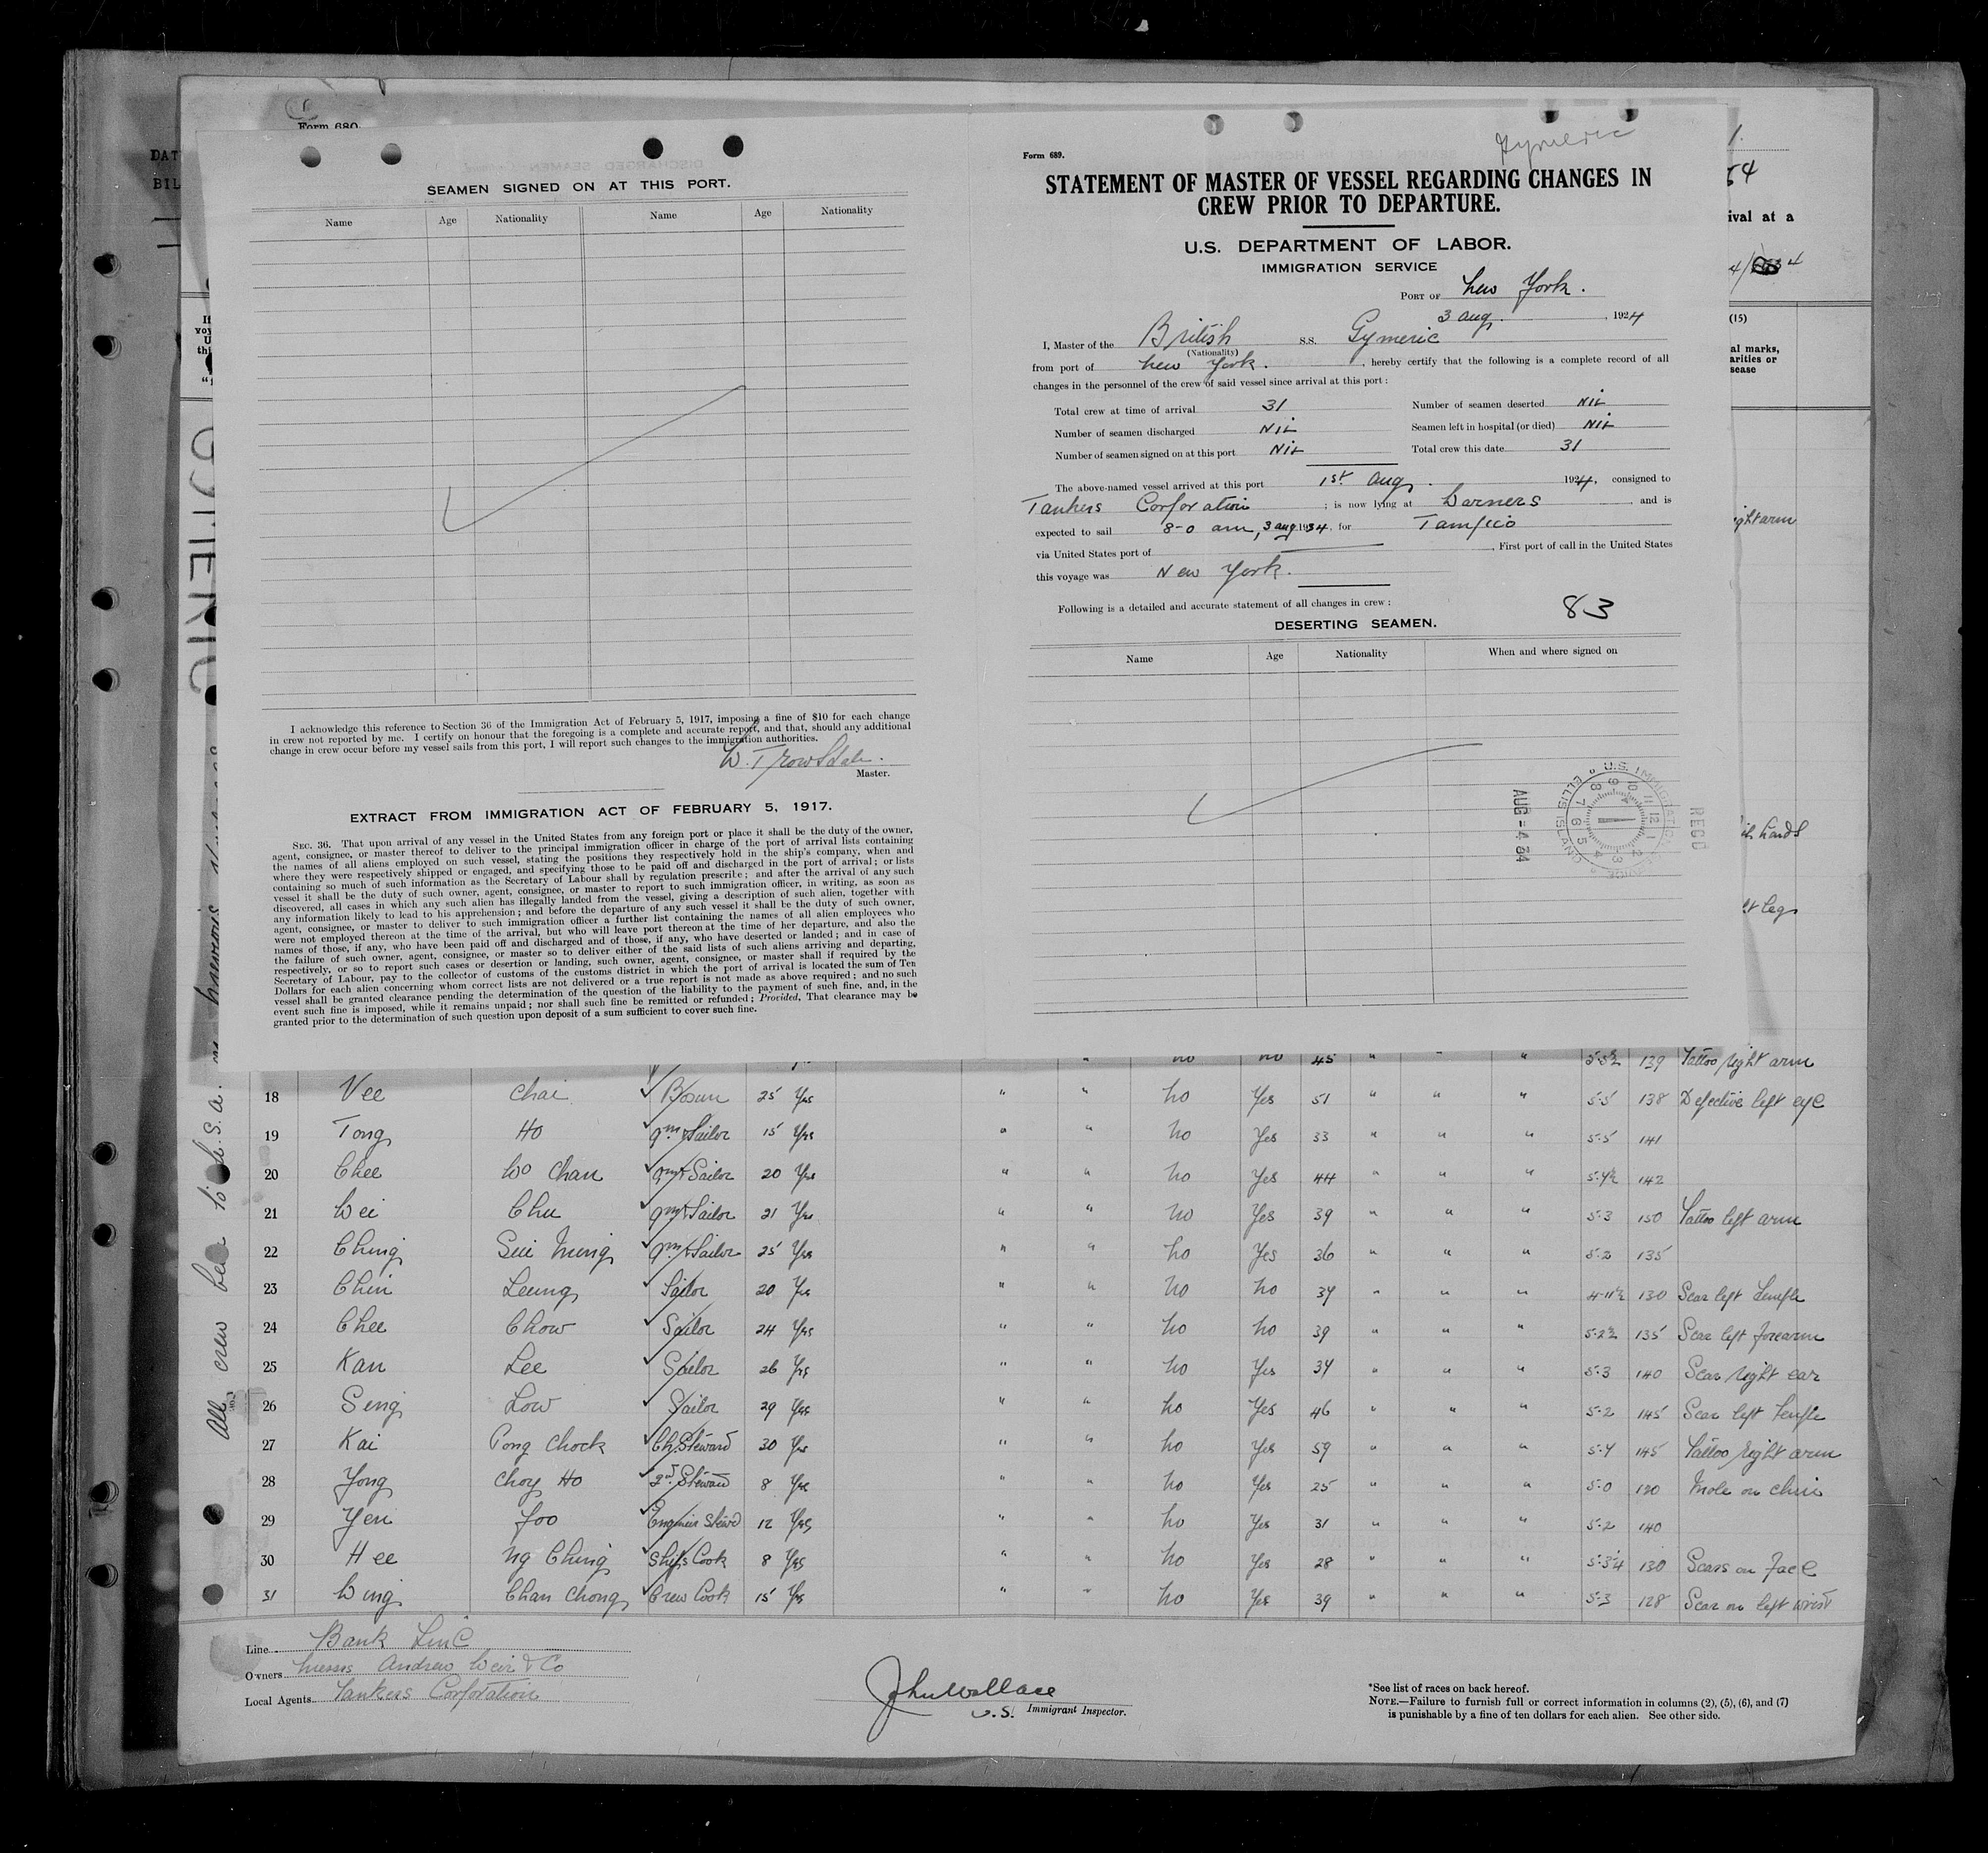 Form 680.
DAT
BIL
SEAMEN SIGNED ON AT THIS PORT.
Name Age Nationality Name Age Nationality
I acknowledge this reference to Section 36 of the Immigration Act of February 5, 1917, imposing a fine of $10 for each change
in crew not reported by me. I certify on honour that the foregoing is a complete and accurate report, and that, should any additional
change in crew occur before my vessel sails from this port, I will report such changes to the immigration authorities.
W. Trowsdale.
Master.
EXTRACT FROM IMMIGRATION ACT OF FEBRUARY 5, 1917.
SEC. 36. That upon arrival of any vessel in the United States from any foreign port or place it shall be the duty of the owner,
agent, consignee, or master thereof to deliver to the principal immigration officer in charge of the port of arrival lists containing
the names of all aliens employed on such vessel, stating the positions they respectively hold in the ship's company, when and
where they were respectively shipped or engaged, and specifying those to be paid off and discharged in the port of arrival; or lists
containing so much of such information as the Secretary of Labour shall by regulation prescribe; and after the arrival of any such
vessel it shall be the duty of such owner, agent, consignee, or master to report to such immigration officer, in writing, as soon as
discovered, all cases in which any such alien has illegally landed from the vessel, giving a description of such alien, together with
any information likely to lead to his apprehension; and before the departure of any such vessel it shall be the duty of such owner,
agent, consignee, or master to deliver to such immigration officer a further list containing the names of all alien employees who
were not employed thereon at the time of the arrival, but who will leave port thereon at the time of her departure, and also the
names of those, if any, who have been paid off and discharged and of those, if any, who have deserted or landed; and in case of
the failure of such owner, agent, consignee, or master so to deliver either of the said lists of such aliens arriving and departing,
respectively, or so to report such cases or desertion or landing, such owner, agent, consignee, or master shall if required by the
Secretary of Labour, pay to the collector of customs of the customs district in which the port of arrival is located the sum of Ten
Dollars for each alien concerning whom correct lists are not delivered or a true report is not made as above required; and no such
vessel shall be granted clearance pending the determination of the question of the liability to the payment of such fine, and, in the
event such fine is imposed, while it remains unpaid; nor shall such fine be remitted or refunded; Provided, That clearance may be
granted prior to the determination of such question upon deposit of a sum sufficient to cover such fine.
Gymeric
Form 689.
STATEMENT OF MASTER OF VESSEL REGARDING CHANGES IN
CREW PRIOR TO DEPARTURE.
U.S. DEPARTMENT OF LABOR.
IMMIGRATION SERVICE
PORT OF New York.
3 aug. , 1924
I, Master of the British S.S. Gymeric
(Nationality)
from port of New York. , hereby certify that the following is a complete record of all
changes in the personnel of the crew of said vessel since arrival at this port:
Total crew at time of arrival 31 Number of seamen deserted NiL
Number of seamen discharged NiL Seamen left in hospital (or died) NiL
Number of seamen signed on at this port NiL Total crew this date 31
The above-named vessel arrived at this port 1st. aug. 1924, consigned to
Tankers Corporation ; is now lying at Warners , and is
expected to sail 8-0 am, 3 aug. 1934, for Tampico
via United States port of , First port of call in the United States
this voyage was New York.
Following is a detailed and accurate statement of all changes in crew: 83
DESERTING SEAMEN.
Name Age Nationality When and where signed on
REC'D
AUG -4 34
U.S. IMMIGRATION SERVICE ELLIS ISLAND
ival at a
(15)
al marks,
arities or
sease
ight arm
hands
legs
All crew
U.S.A.
no no 45 " " " 5-5½ 139 Tattoo right arm
18 Vee Chai Bosun 25 Yrs " " no Yes 51 " " " 5-5 138 Defective left eye
19 Tong Ho Qmr Sailor 15 Yrs " " no Yes 33 " " " 5-5 141
20 Chee Wo Chan Qmr Sailor 20 Yrs " " no Yes 44 " " " 5-4½ 142
21 Wei Chu Qmr Sailor 21 Yrs " " no Yes 39 " " " 5-3 150 Tattoo left arm
22 Ching Sui Ming Qmr Sailor 25 Yrs " " no Yes 36 " " " 5-2 135
23 Chin Leung Sailor 20 Yrs " " no no 34 " " " 4-11½ 130 Scar left temple
24 Chee Chow Sailor 24 Yrs " " no no 39 " " " 5-2½ 135 Scar left forearm
25 Kan Lee Sailor 26 Yrs " " no Yes 34 " " " 5-3 140 Scar right ear
26 Seng Low Sailor 29 Yrs " " no Yes 46 " " " 5-2 145 Scar left temple
27 Kai Pong Chock Ch. Steward 30 Yrs " " no Yes 59 " " " 5-4 145 Tattoo right arm
28 Yong Choy Ho 2nd. Steward 8 Yrs " " no Yes 25 " " " 5-0 120 Mole on chin
29 Yen Foo Engineer Stewd 12 Yrs " " no Yes 31 " " " 5-2 140
30 Hee Ng Ching Ships Cook 8 Yrs " " no Yes 28 " " " 5-3¼ 130 Scars on face
31 Wing Chan Chong Crew Cook 15 Yrs " " no Yes 39 " " " 5-3 128 Scar on left wrist
Line Bank Line
Owners Messrs Andrew Weir & Co
Local Agents Tankers Corporation
John Wallace
U.S. Immigrant Inspector.
*See list of races on back hereof.
NOTE.—Failure to furnish full or correct information in columns (2), (5), (6), and (7)
is punishable by a fine of ten dollars for each alien. See other side.